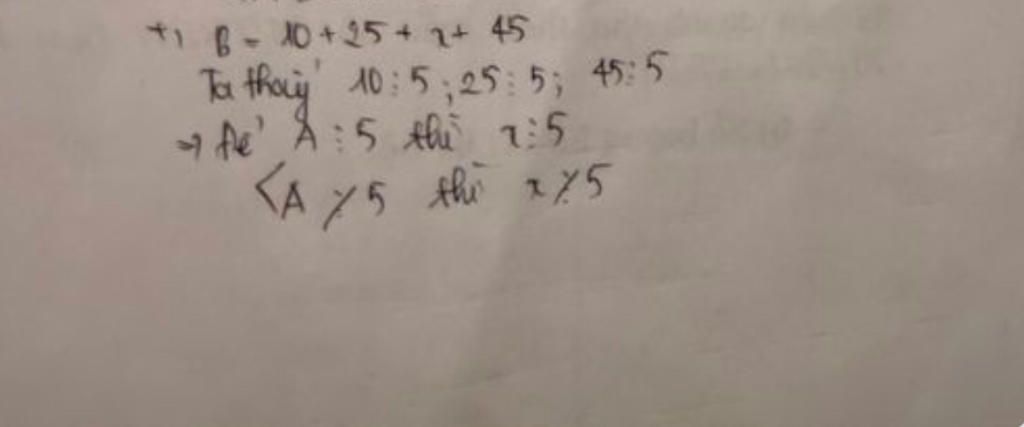 +, B = 10 + 25 + x + 45
Ta thấy 10 ⋮ 5 ; 25 ⋮ 5 ; 45 ⋮ 5
→ Để A ⋮ 5 thì x ⋮ 5
<A ⋮̸ 5 thì x ⋮̸ 5